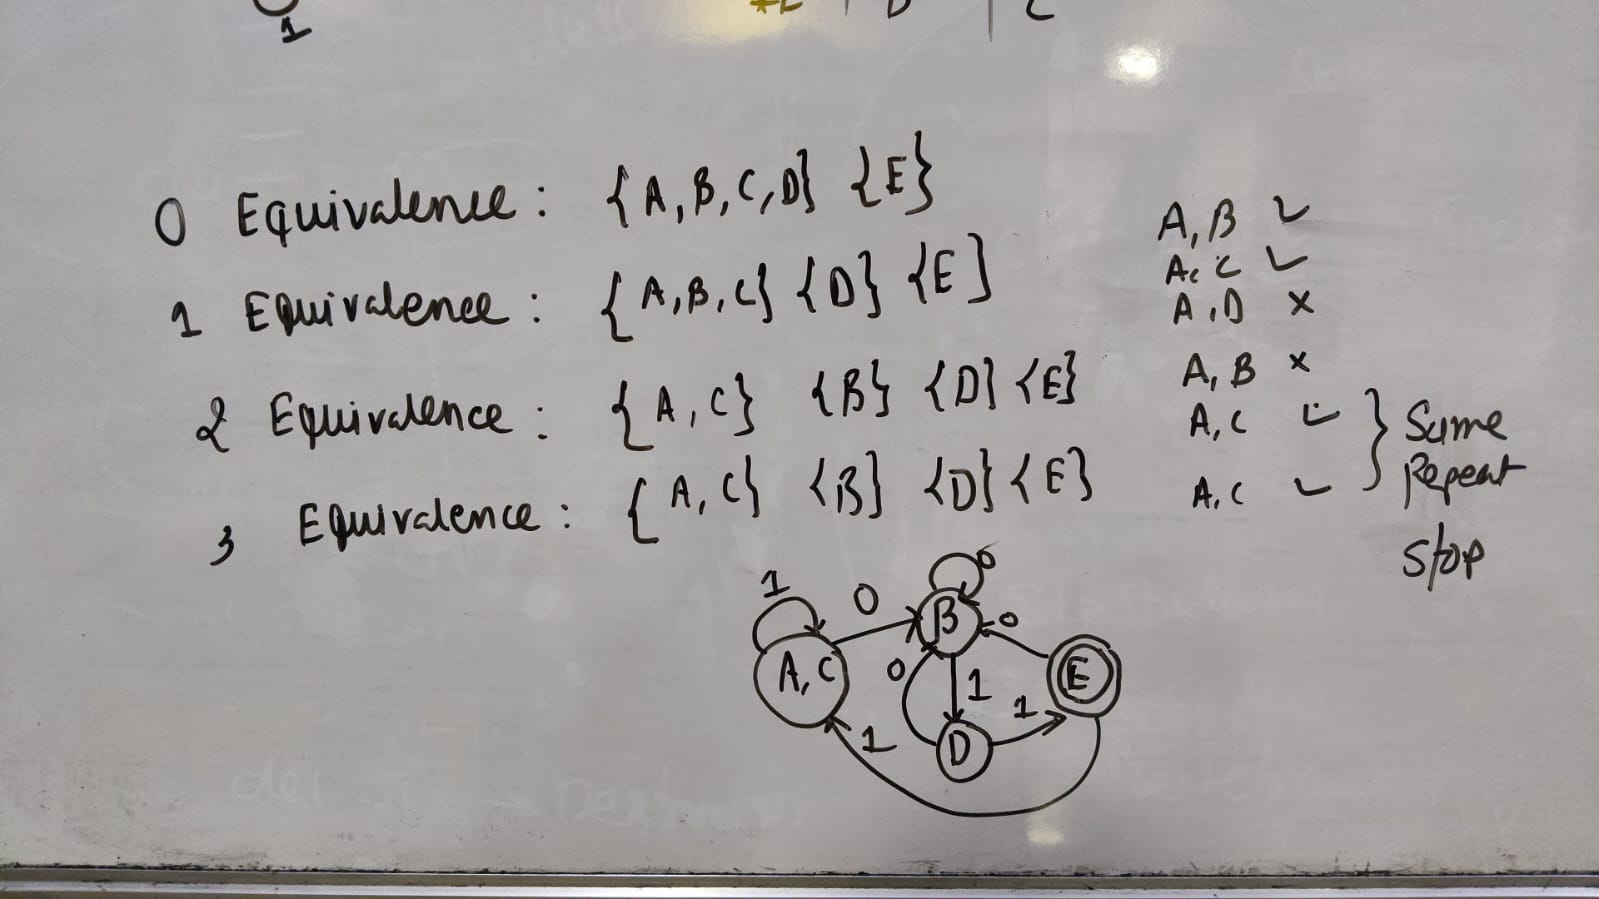 1
*E | B | C
0 Equivalence : {A, B, C, D} {E}
1 Equivalence : {A, B, C} {D} {E}
2 Equivalence : {A, C} {B} {D} {E}
3 Equivalence : {A, C} {B} {D} {E}
A, B ✓
A, C ✓
A, D ×
A, B ×
A, C ✓
A, C ✓
} Same
Repeat
Stop
1
0
0
B
0
A, C
0
1
E
1
1
D